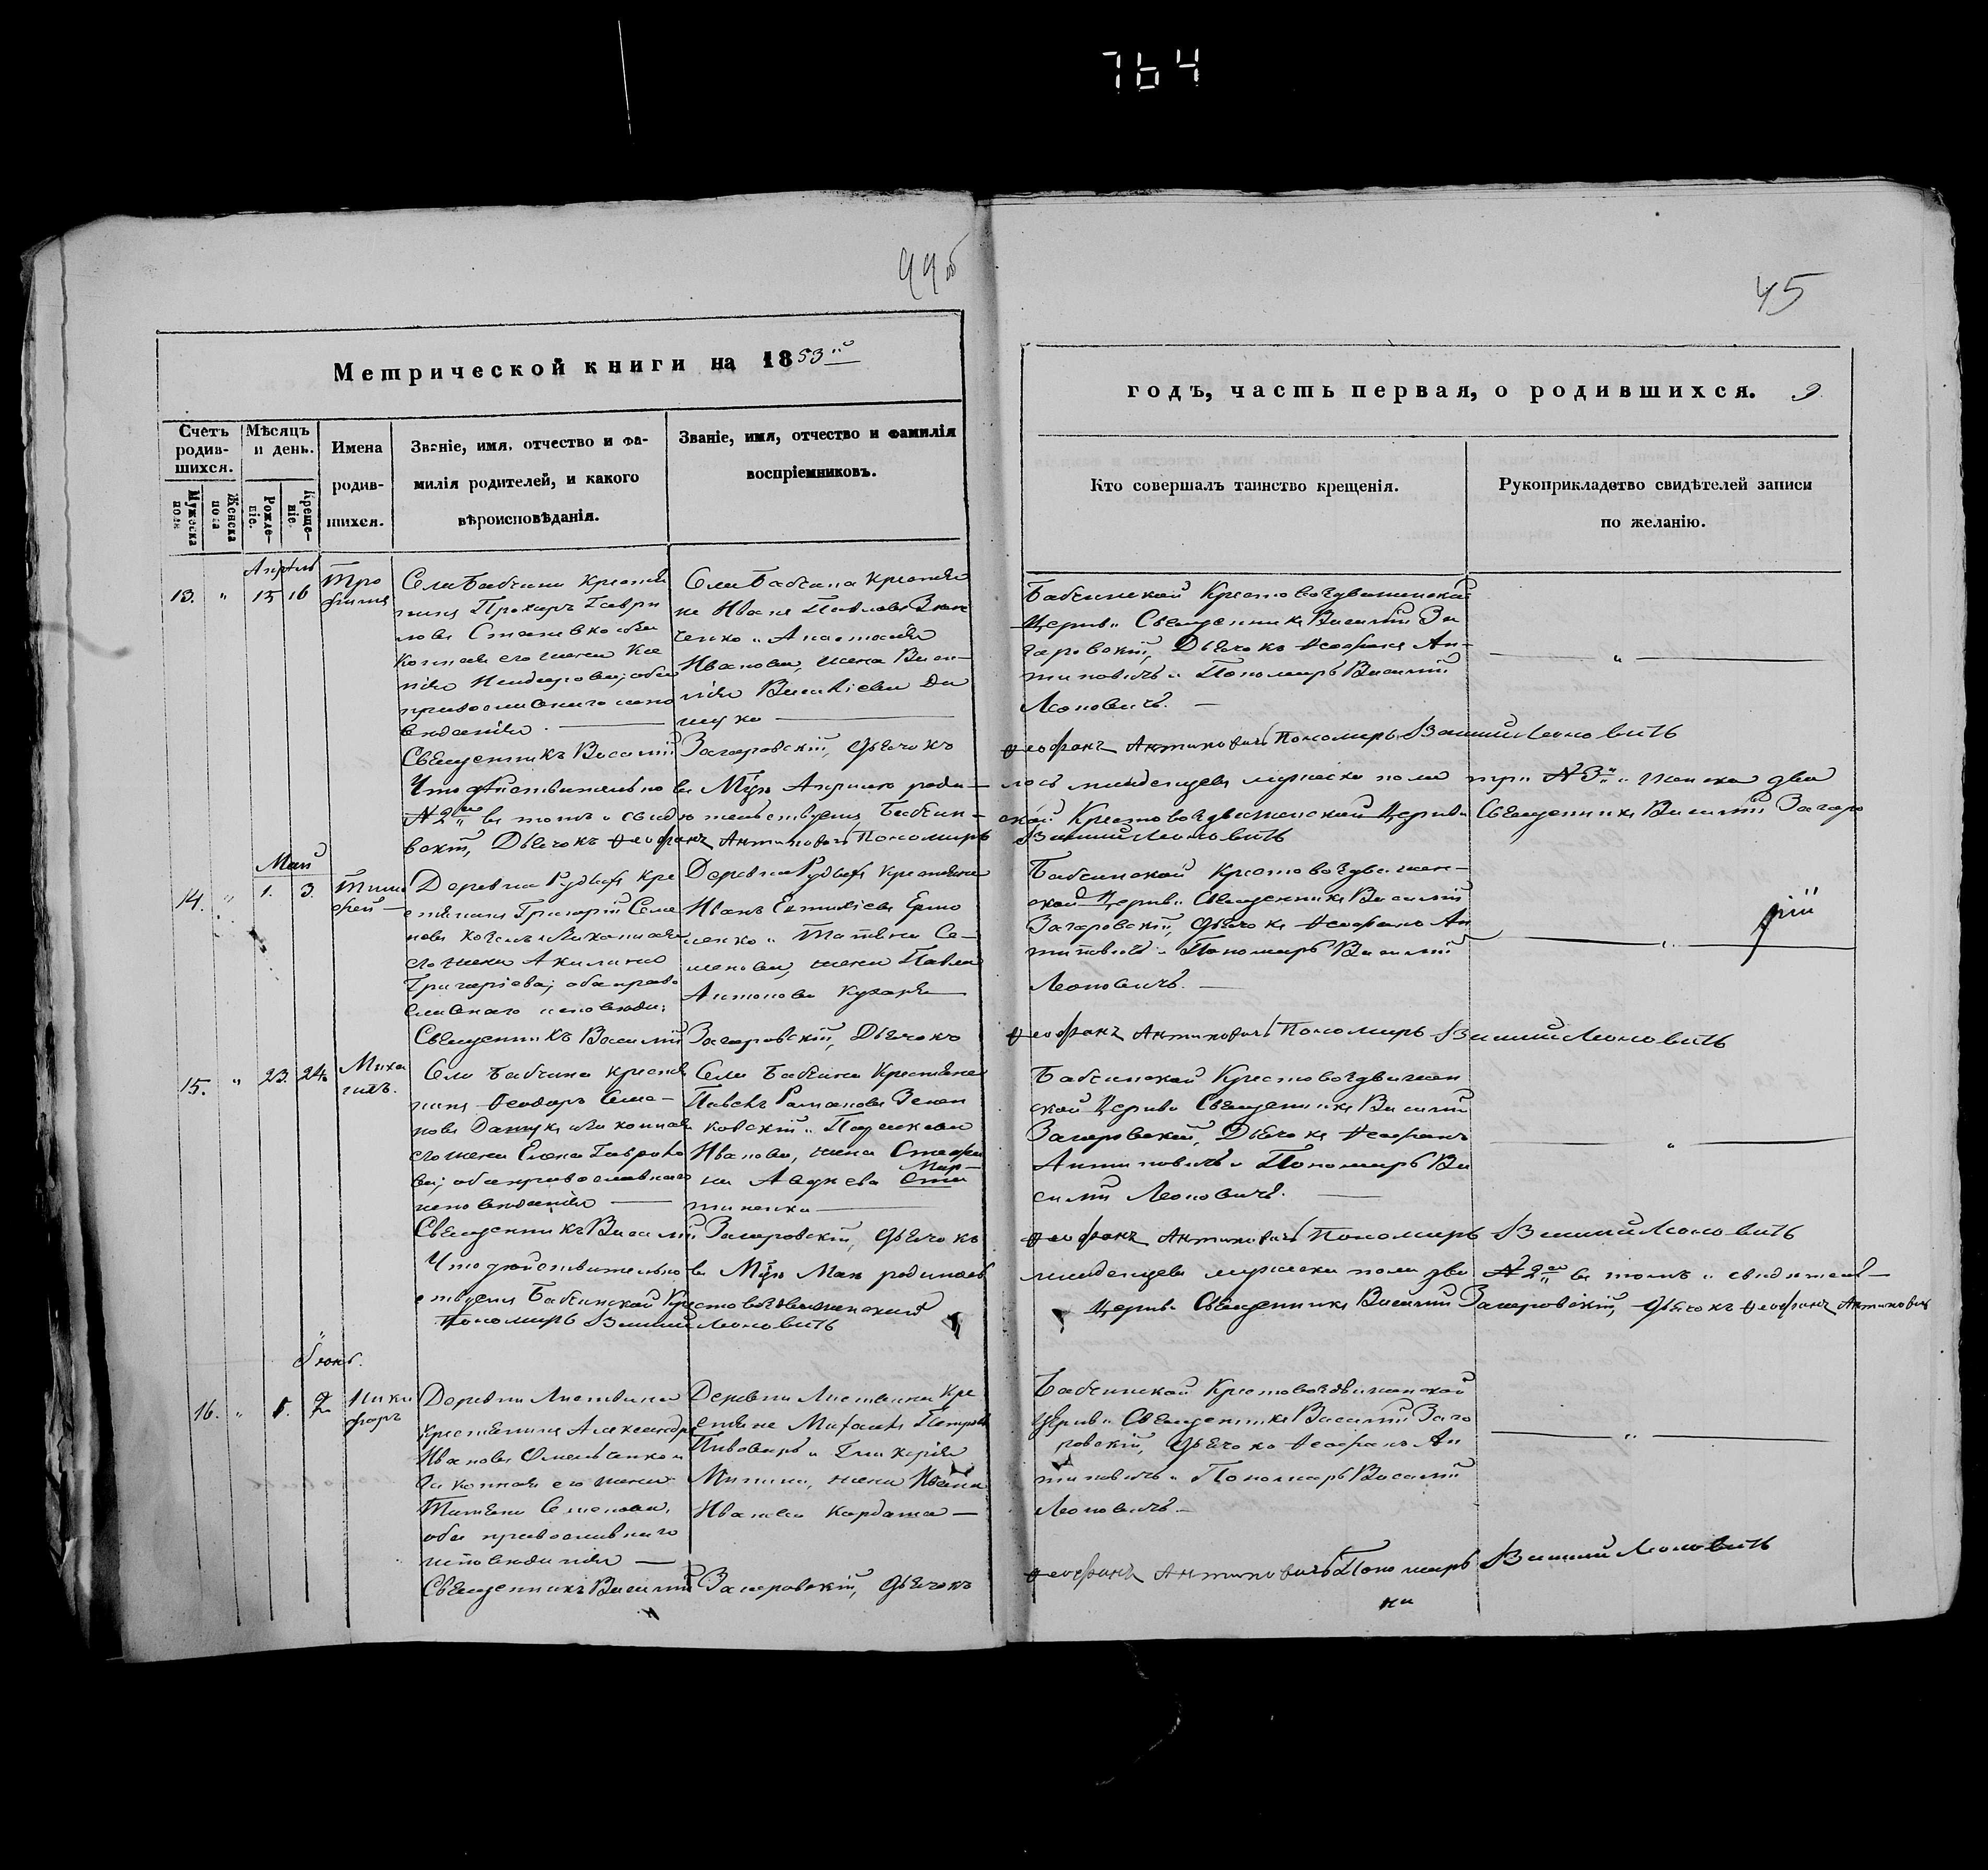 764
44об
45
Метрической книги на 1853й
годъ, часть первая, о родившихся. 9.
Счетъ родив-шихся.
Мужеска пола
Женска пола
Мѣсяцъ и день.
Рожде-ніе.
Креще-ніе.
Имена
родив-
шихся.
Званіе, имя, отчество и фа-
милія родителей, и какого
вѣроисповѣданія.
Званіе, имя, отчество и фамилія
воспріемниковъ.
Кто совершалъ таинство крещенія.
Рукоприкладство свидѣтелей записи
по желанію.
Апрѣль
13. " 15 16
Тро
фимъ
Села Бабчина крестья
нинъ Прохоръ Гаври
ловъ
конная его жена
обa
православнаго испо
вѣданія.
Села Бабчина крестья
не Иванъ Павловъ
ченко и Анастасія
Иванова, жена
Бабчинской Крестовоздвиженской
Церкви Священникъ Василій За
гаровскій, Дьячокъ Ѳеофанъ Ан-
типовичъ и Пономарь Василій
Леоновичъ. —
Священникъ Василій Загаровскій, Дьячокъ Ѳеофанъ Антиповичъ Пономарь Василій Леоновичъ
Что дѣйствительно въ Мцѣ Апрѣлѣ роди-лось младенцевъ мужеска пола три №3" и женска два
№2" въ томъ и свидѣтельствуемъ Бабчин-ской Крестовоздвиженской Церкви Священникъ Василій Загаро
вскій, Дьячокъ Ѳеофанъ Антиповичъ Пономарь Василій Леоновичъ
Май
14. " 1. 3.
Тимо
фей —
Деревни Рудыхъ кре
стьянинъ Григорій Семе
новъ
его жена Акилина
Григорьева; оба право
славнаго исповѣда:
Деревни Рудыхъ крестьяне
Иванъ Ермо
ленко и Татьяна Се-
менова, жена Павла
Антонова Кухаря
Бабчинской Крестовоздвижен-
ской Церкви Священникъ Василій
Загаровскій, Дьячокъ Ѳеофанъ Ан
типовичъ и Пономарь Василій
Леоновичъ. —
рій
Священникъ Василій Загаровскій, Дьячокъ Ѳеофанъ Антиповичъ Пономарь Василій Леоновичъ
15. " 23. 24.
Миха
илъ.
Села Бабчина крестья
нинъ Ѳеодоръ Семе-
новъ Дашукъ и законная
его жена Елена Гаврило
ва; оба православнаго
исповѣданія
Села Бабчина Крестьяне
Павелъ Романовъ Зенен
ковскій и Параскева
Иванова, жена Стефа
на Авдѣева Мар-
тиненка
Бабчинской Крестовоздвижен
ской Церкви Священникъ Василій
Загаровскій, Дьячокъ Ѳеофанъ
Антиповичъ и Пономарь Ва
силій Леоновичъ.
Священникъ Василій Загаровскій, Дьячокъ Ѳеофанъ Антиповичъ Пономарь Василій Леоновичъ
Что дѣйствительно въ Мцѣ Маѣ родилось младенцевъ мужеска пола два №2" въ томъ и свидѣтель-
ствуемъ Бабчинской Крестовоздвиженской Церкви Священникъ Василій Загаровскій, Дьячокъ Ѳеофанъ Антиповичъ
Пономарь Василій Леоновичъ
Іюнь.
16. " 1. 2
Ники
форъ
Деревни Листвина
крестьянинъ Александръ
Ивановъ Омельченко и
законная его жена
Татьяна Семенова,
оба православнаго
исповѣданія —
Деревни Листвина кре
стьяне Михаилъ Петровъ
Пивоваръ и Гликерія
Минина, жена Ивана
Иванова Кордаша —
Бабчинской Крестовоздвиженской
Церкви Священникъ Василій Зага
ровскій, Дьячокъ Ѳеофанъ Ан
типовичъ и Пономарь Василій
Леоновичъ —
Священникъ Василій Загаровскій, Дьячокъ Ѳеофанъ Антиповичъ Пономарь Василій Леоновичъ